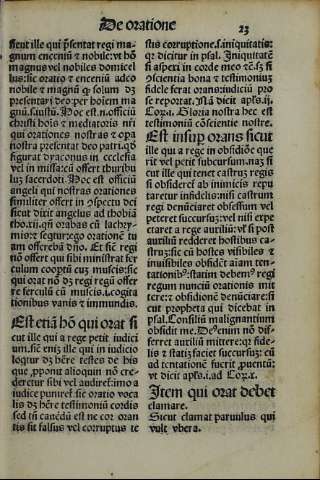 De oratione
23
sicut ille qui p̄sentat regi ma-
gnum enceniū & nobile: vt hō
magnus vel nobilis domicel
lus: sic oratio ē enceniū adeo
nobile & magnū ꝙ solum dʒ
presentari deo: per hoīem ma
gnū .s. iustū. Hoc est .n. officiū
christi hoīs & mediatoris nr̄i
qui orationes nostras & opa
nostra presentat deo patri. qđ
figurat dyaconus in ecclesia
vel in missa: cū offert thuribu
lum sacerdoti. Hoc est officiū
angeli qui nostras orationes
similiter offert in ↄspectu dei
sicut dixit angelus ad thobiā
tho. xij. qn̄ orabas cū lachry-
mis: & seqtur: ego orationē tu
am offerebā dn̄o. Et sic regi
nō offert qui sibi ministrat fer
culum coopertū cuʒ muscis: sic
qui orat nō dʒ regi regū offer
re ferculū cū muscis .i. cogita
tionibus vanis & immundis.
Est etiā hō qui orat si
cut ille qui a rege petit iudici
um. sic enī ille qui in iudicio
loqtur dʒ hēre testes de his
que ꝓponit alioquin nō cre-
deretur sibi vel audiret: imo a
iudice puniret sic oratio voca
lis dʒ hēre testimoniū cordis
sed tn̄ cauēdū est ne cor oran
tis sit falsus vel corruptus te
stis corruptione .s. iniquitatis:
qr dicitur in psal. Iniquitatē
si aspexi in corde meo &c. sʒ si
ↄscientia bona & testimoniuʒ
fidele ferat orans: iudiciū pro
se reportat. Nā dicit apl̄s .ij.
Coꝝ. Gloria nostra hec est
testimoniū cōscientie nostre.
Est insuꝑ orans sicut
ille qui a rege in obsidiōe que
rit vel petit subcursum. naʒ si
cut ille qui tenet castruʒ regis
si obsideret ab inimicis repu
taretur infidelis: nisi castrum
regi denūciaret obsessum vel
peteret succursuʒ: vel nisi expe
ctaret a rege auxiliū: vl̄ si post
auxiliū redderet hostibus ca-
struʒ: sic cū hostes visibiles &
inuisibiles obsidēt aīam ten-
tationibꝰ: statim debemꝰ regi
regum nunciū orationis mit
tere: & obsidionē denūciare: si
cut propheta qui dicebat in
psal. Consiliū malignantium
obsidit me. Deꝰ enim nō dif-
ferret auxiliū mittere: qr fide-
lis & statiʒ faciet succursuʒ: cū
ad tentationē fuerit ꝓuentū:
vt dicit apl̄s .i. ad Coꝝ. x.
Item qui orat debet
clamare.
Sicut clamat paruulus qui
vult vbera.